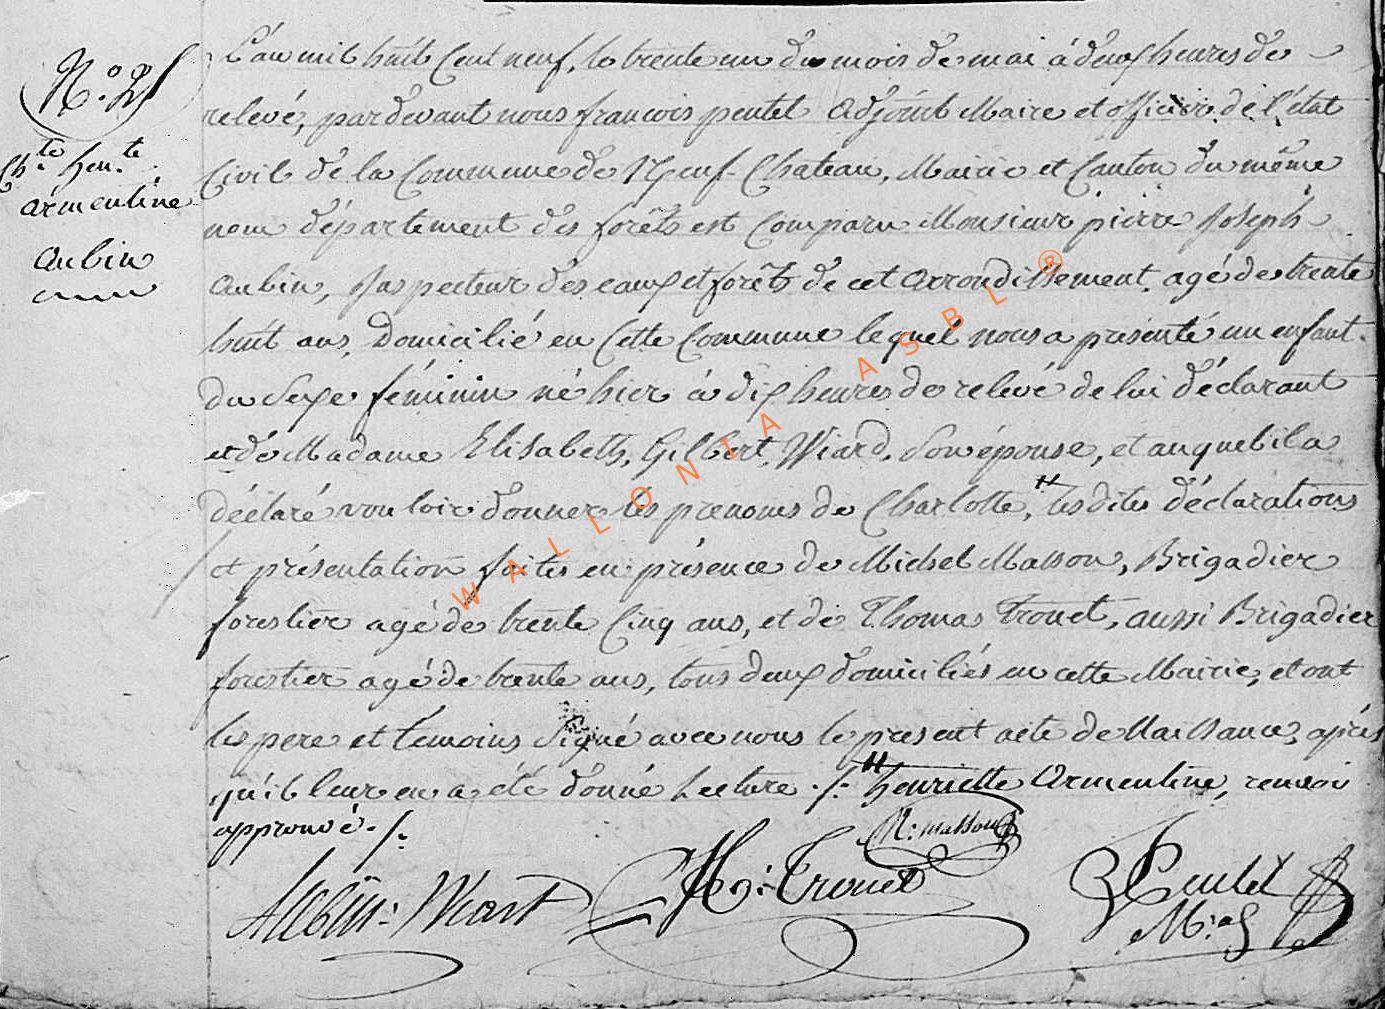 N.º 2
Ch.te hen.te
armentine
aubin
L'an mil huit Cent neuf, le trente un du mois de mai à deux heures de
relevé, pardevant nous françois pentel adjoint Maire et officier de l'état
Civil de la Commune de Neuf-Chateau, Mairie et Canton du même
nom département des forêts est Comparu Monsieur pierre Joseph
aubin, Inspecteur des eaux et forêts de cet arrondissement, agé de trente
huit ans, domicilié en Cette Commune lequel nous a présenté un enfant
du Sexe féminin né hier à dix heures de relevé de lui déclarant
et de Madame Elisabeth, Gilbert, Wiard, Son épouse, et auquel il a
déclaré vouloir donner les prenoms de Charlotte, H les dites déclarations
et présentation faites en présence de Michel Masson, Brigadier
forestier agé de trente Cinq ans, et de Thomas Trouet, aussi Brigadier
forestier agé de trente ans, tous deux domiciliés en cette Mairie, et ont
les pere et temoins Signé avec nous le présent acte de Naissance, après
qu'il leur en a été donné Lecture ./. H henriette Armentine, renvoi
approuvé ./.
N: masson
Aubin: Wiart
Th: Trouet
Pentel
WALLONIA ASBL ®